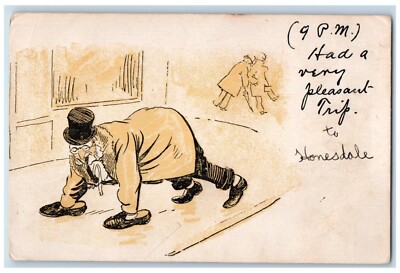 (9 P.M.)
Had a
very
pleasant
Trip.
to
Honesdale